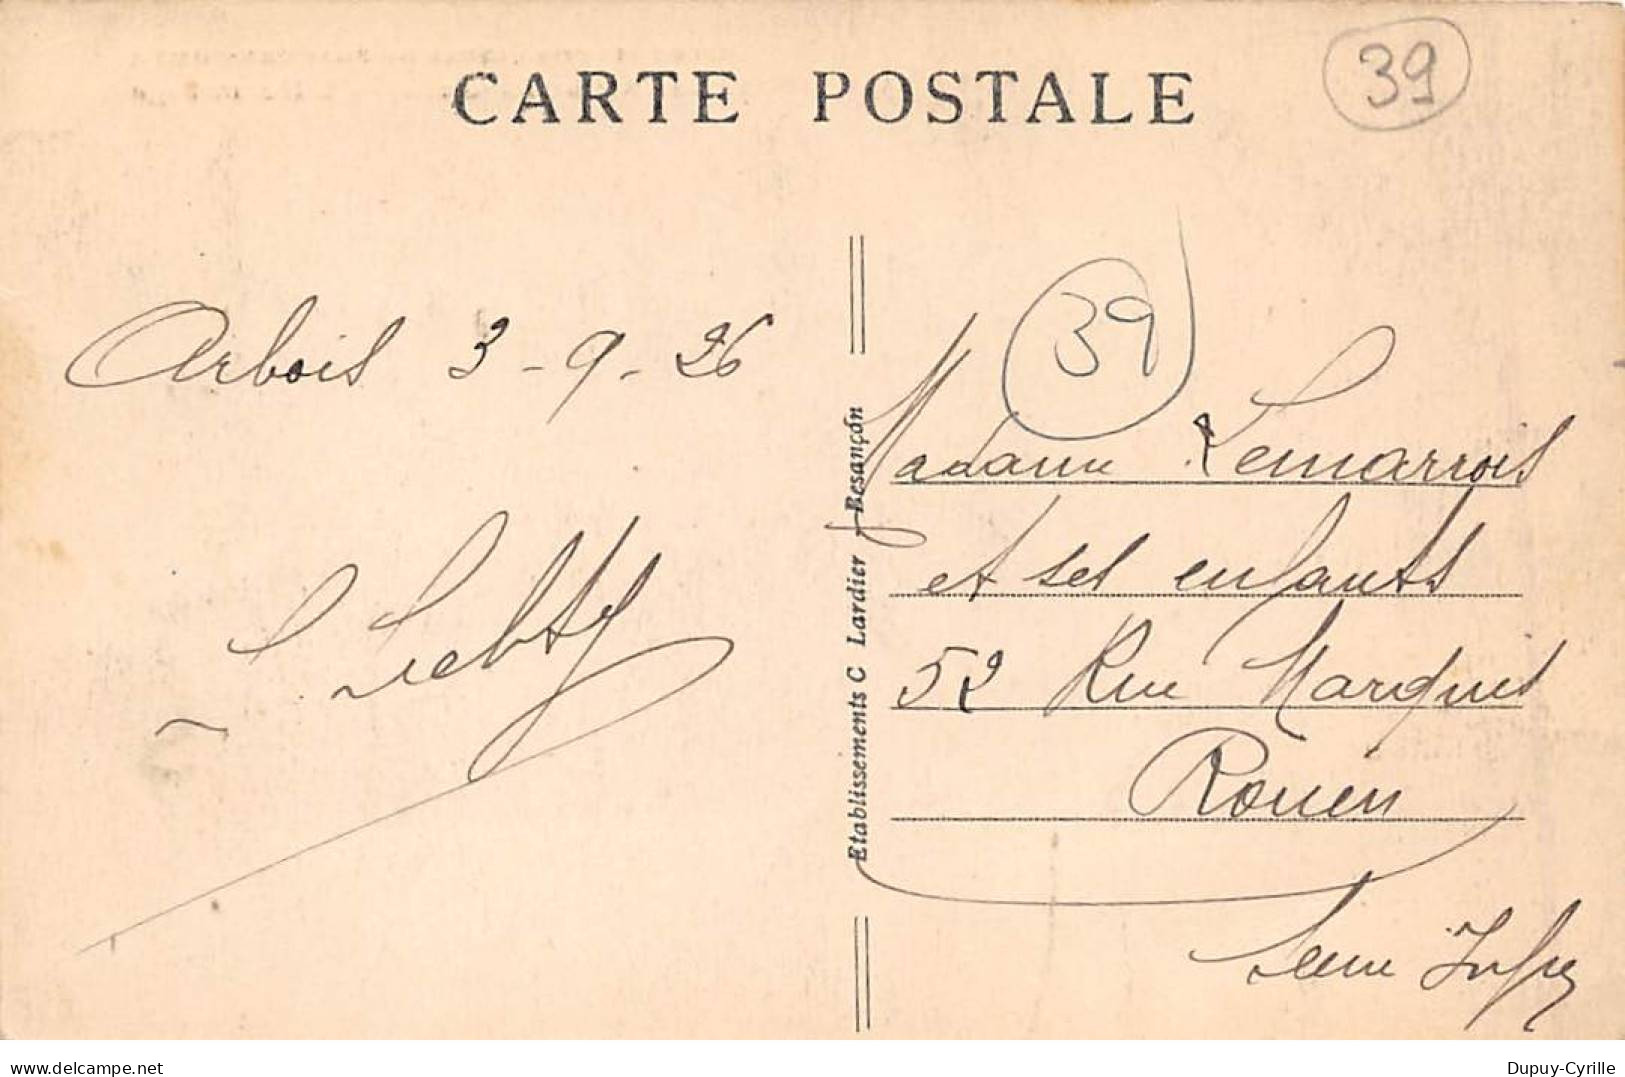 CARTE POSTALE
39
39
Arbois 3-9-26
Etablissements C Lardier - Besançon
Madame Lemarrois
et ses enfants
52 Rue Marquis
Rouen
Seine Infre
www.delcampe.net
Dupuy-Cyrille